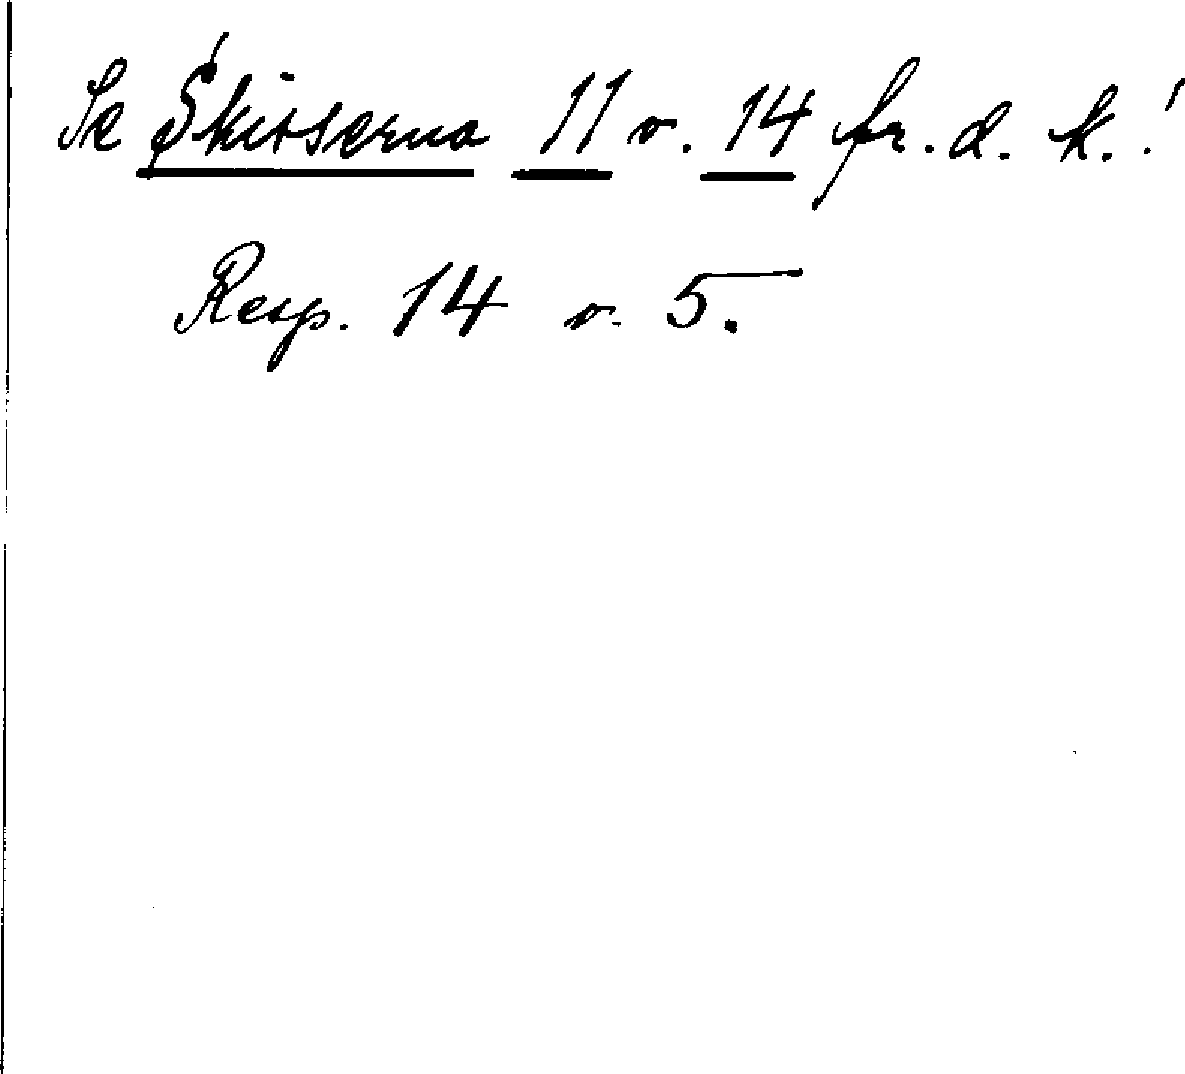 Se Skisserna 11 o. 14 fr. d. k.!
Resp. 14 o. 5.